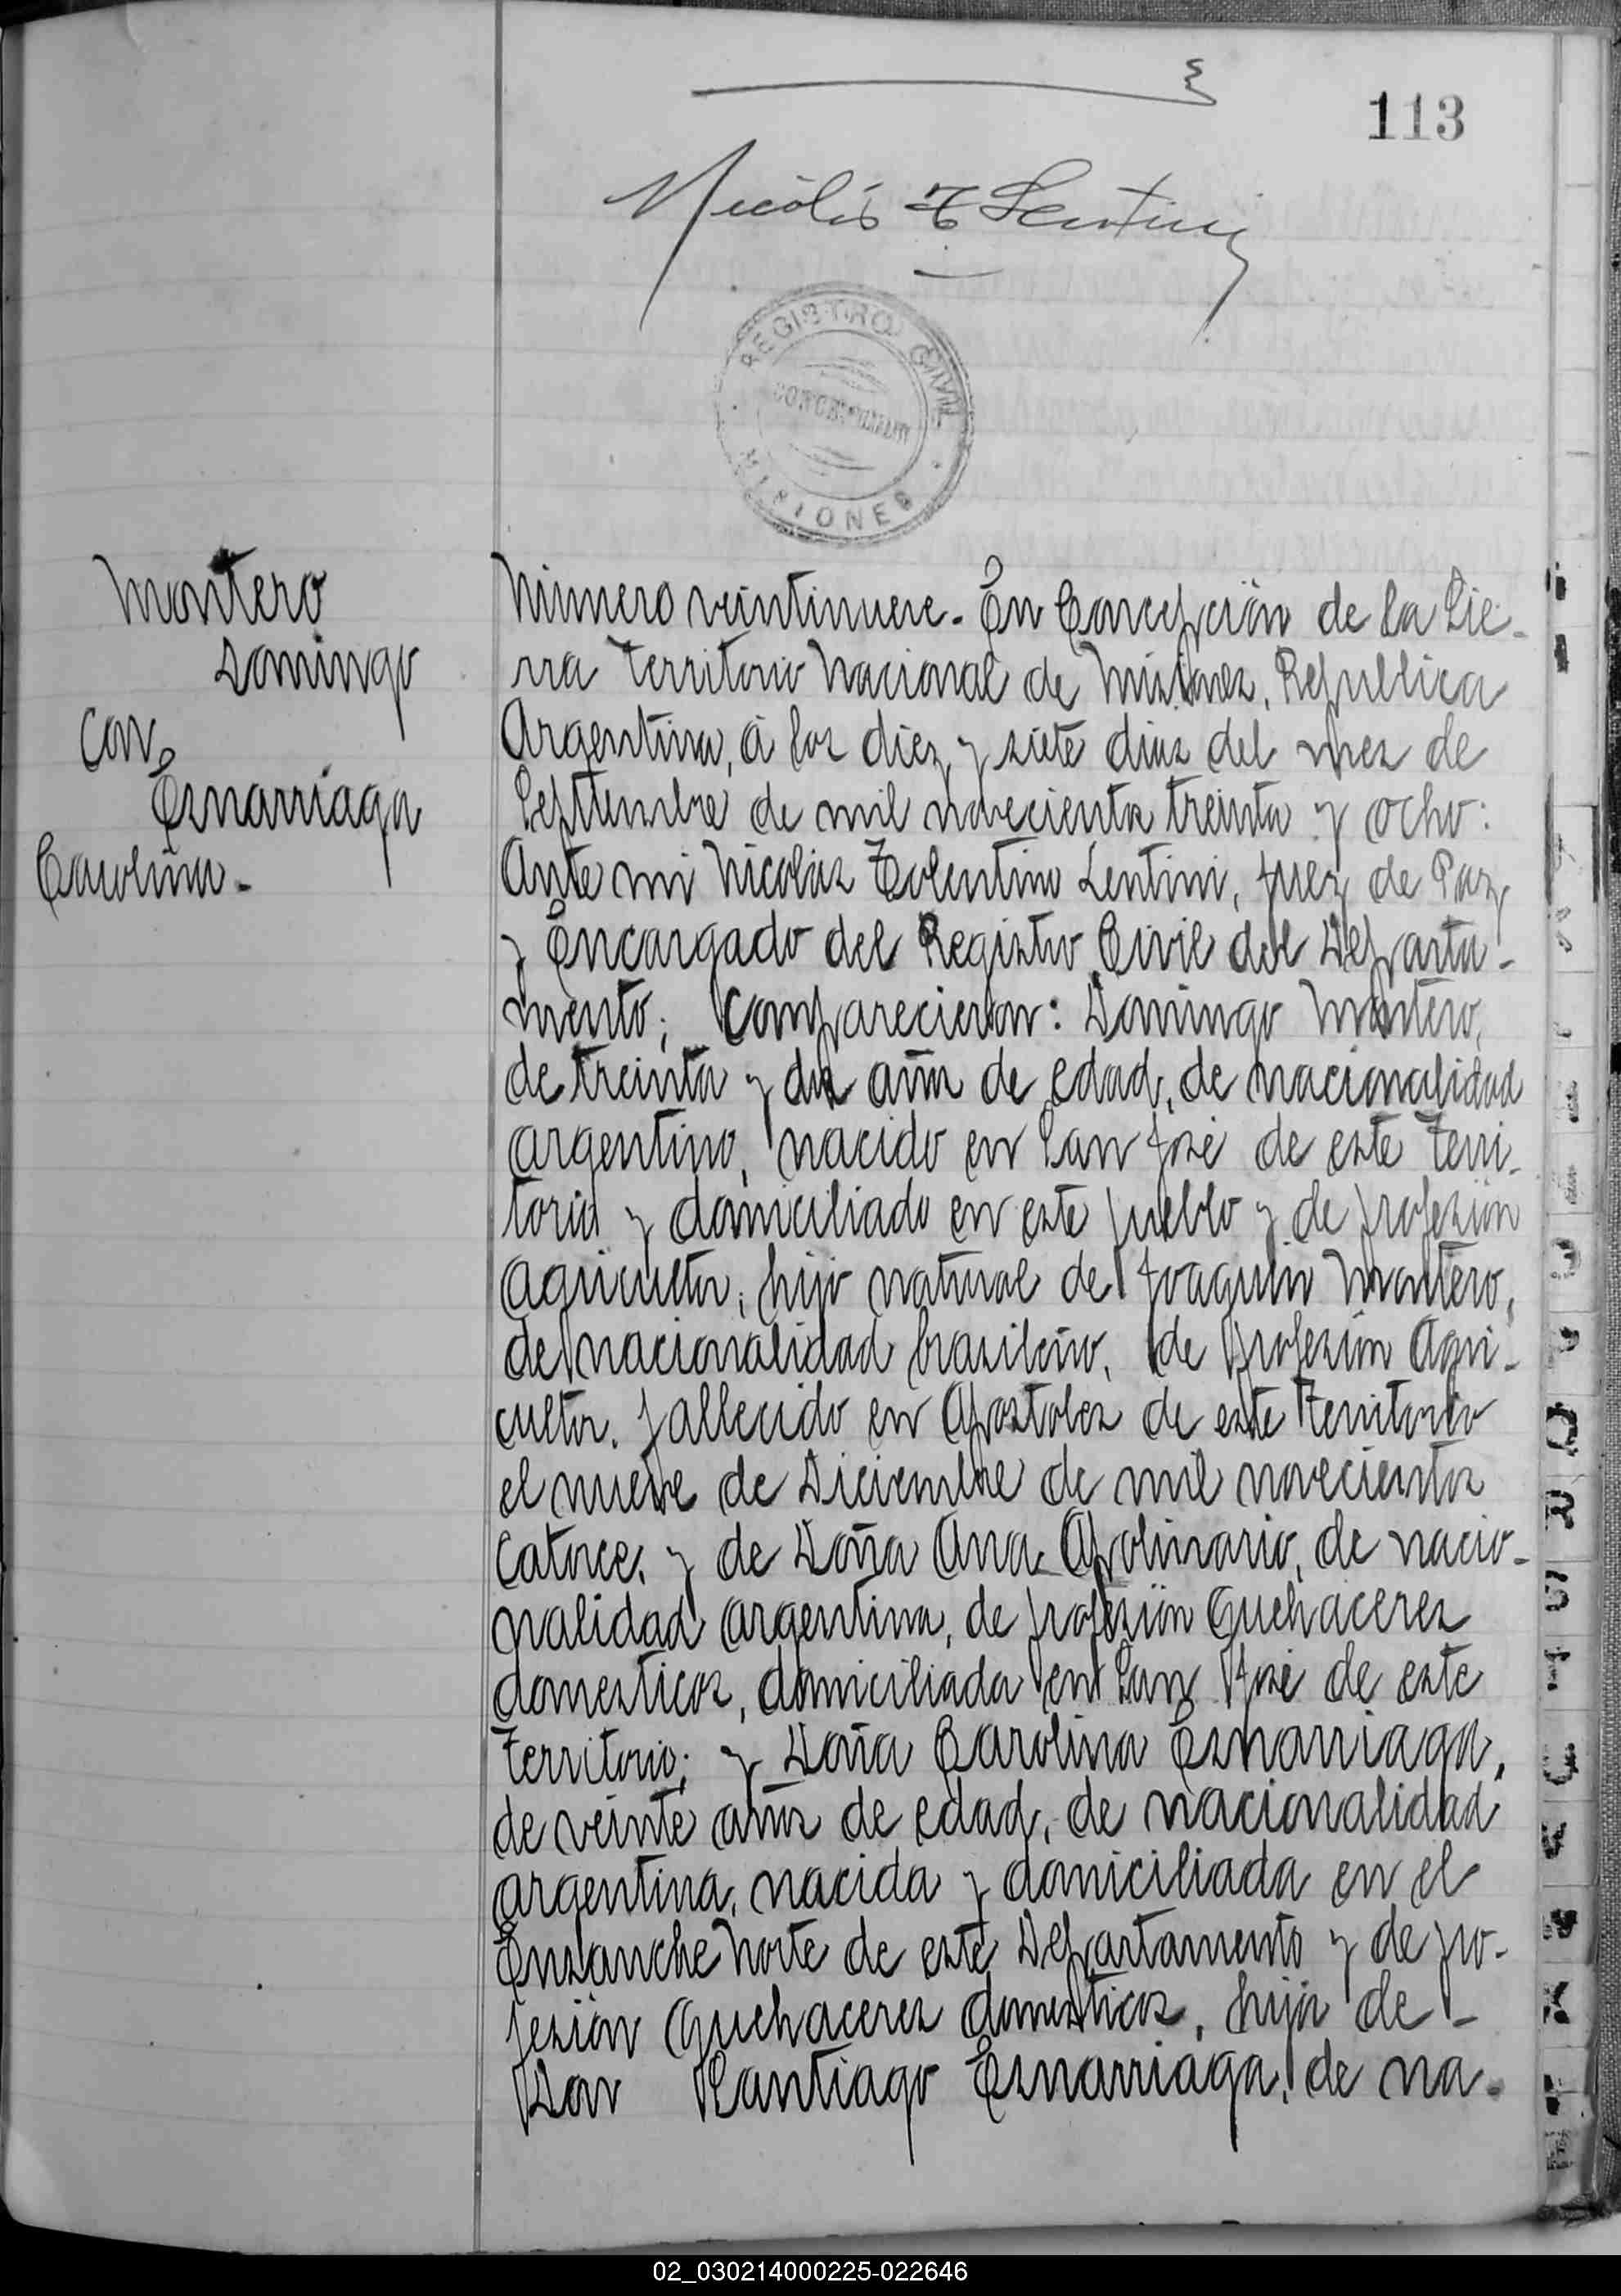 113
Nicolás T Lentini
REGISTRO CIVIL
CONCEPCION
MISIONES
Montero
Domingo
Con
Esnarriaga
Carolina.-
Número veintinueve.- En Concepción de la Sie-
rra Territorio Nacional de Misiones, República
Argentina, á los diez y siete dias del mes de
Septiembre de mil novecientos treinta y ocho:
Ante mi Nicolás Tolentino Lentini, Juez de Paz
y Encargado del Registro Civil del Departa-
mento; comparecieron: Domingo Montero,
de treinta y dos años de edad, de nacionalidad
argentino, nacido en San José de este Terri-
torio y domiciliado en este pueblo y de profesión
Agricultor, hijo natural de Joaquín Montero,
de nacionalidad brasileño, de profesión Agri-
cultor, fallecido en Apostoles de este Territorio
el nueve de Diciembre de mil novecientos
catorce, y de Doña Ana Apolinario, de nacio-
nalidad argentina, de profesión Quehaceres
domesticos, domiciliada en San José de este
Territorio; y Doña Carolina Esnarriaga,
de veinte años de edad, de nacionalidad
argentina, nacida y domiciliada en el
Ensanche Norte de este Departamento y de pro-
fesión Quehaceres domesticos, hija de -
Don Santiago Esnarriaga, de na-
02_030214000225-022646